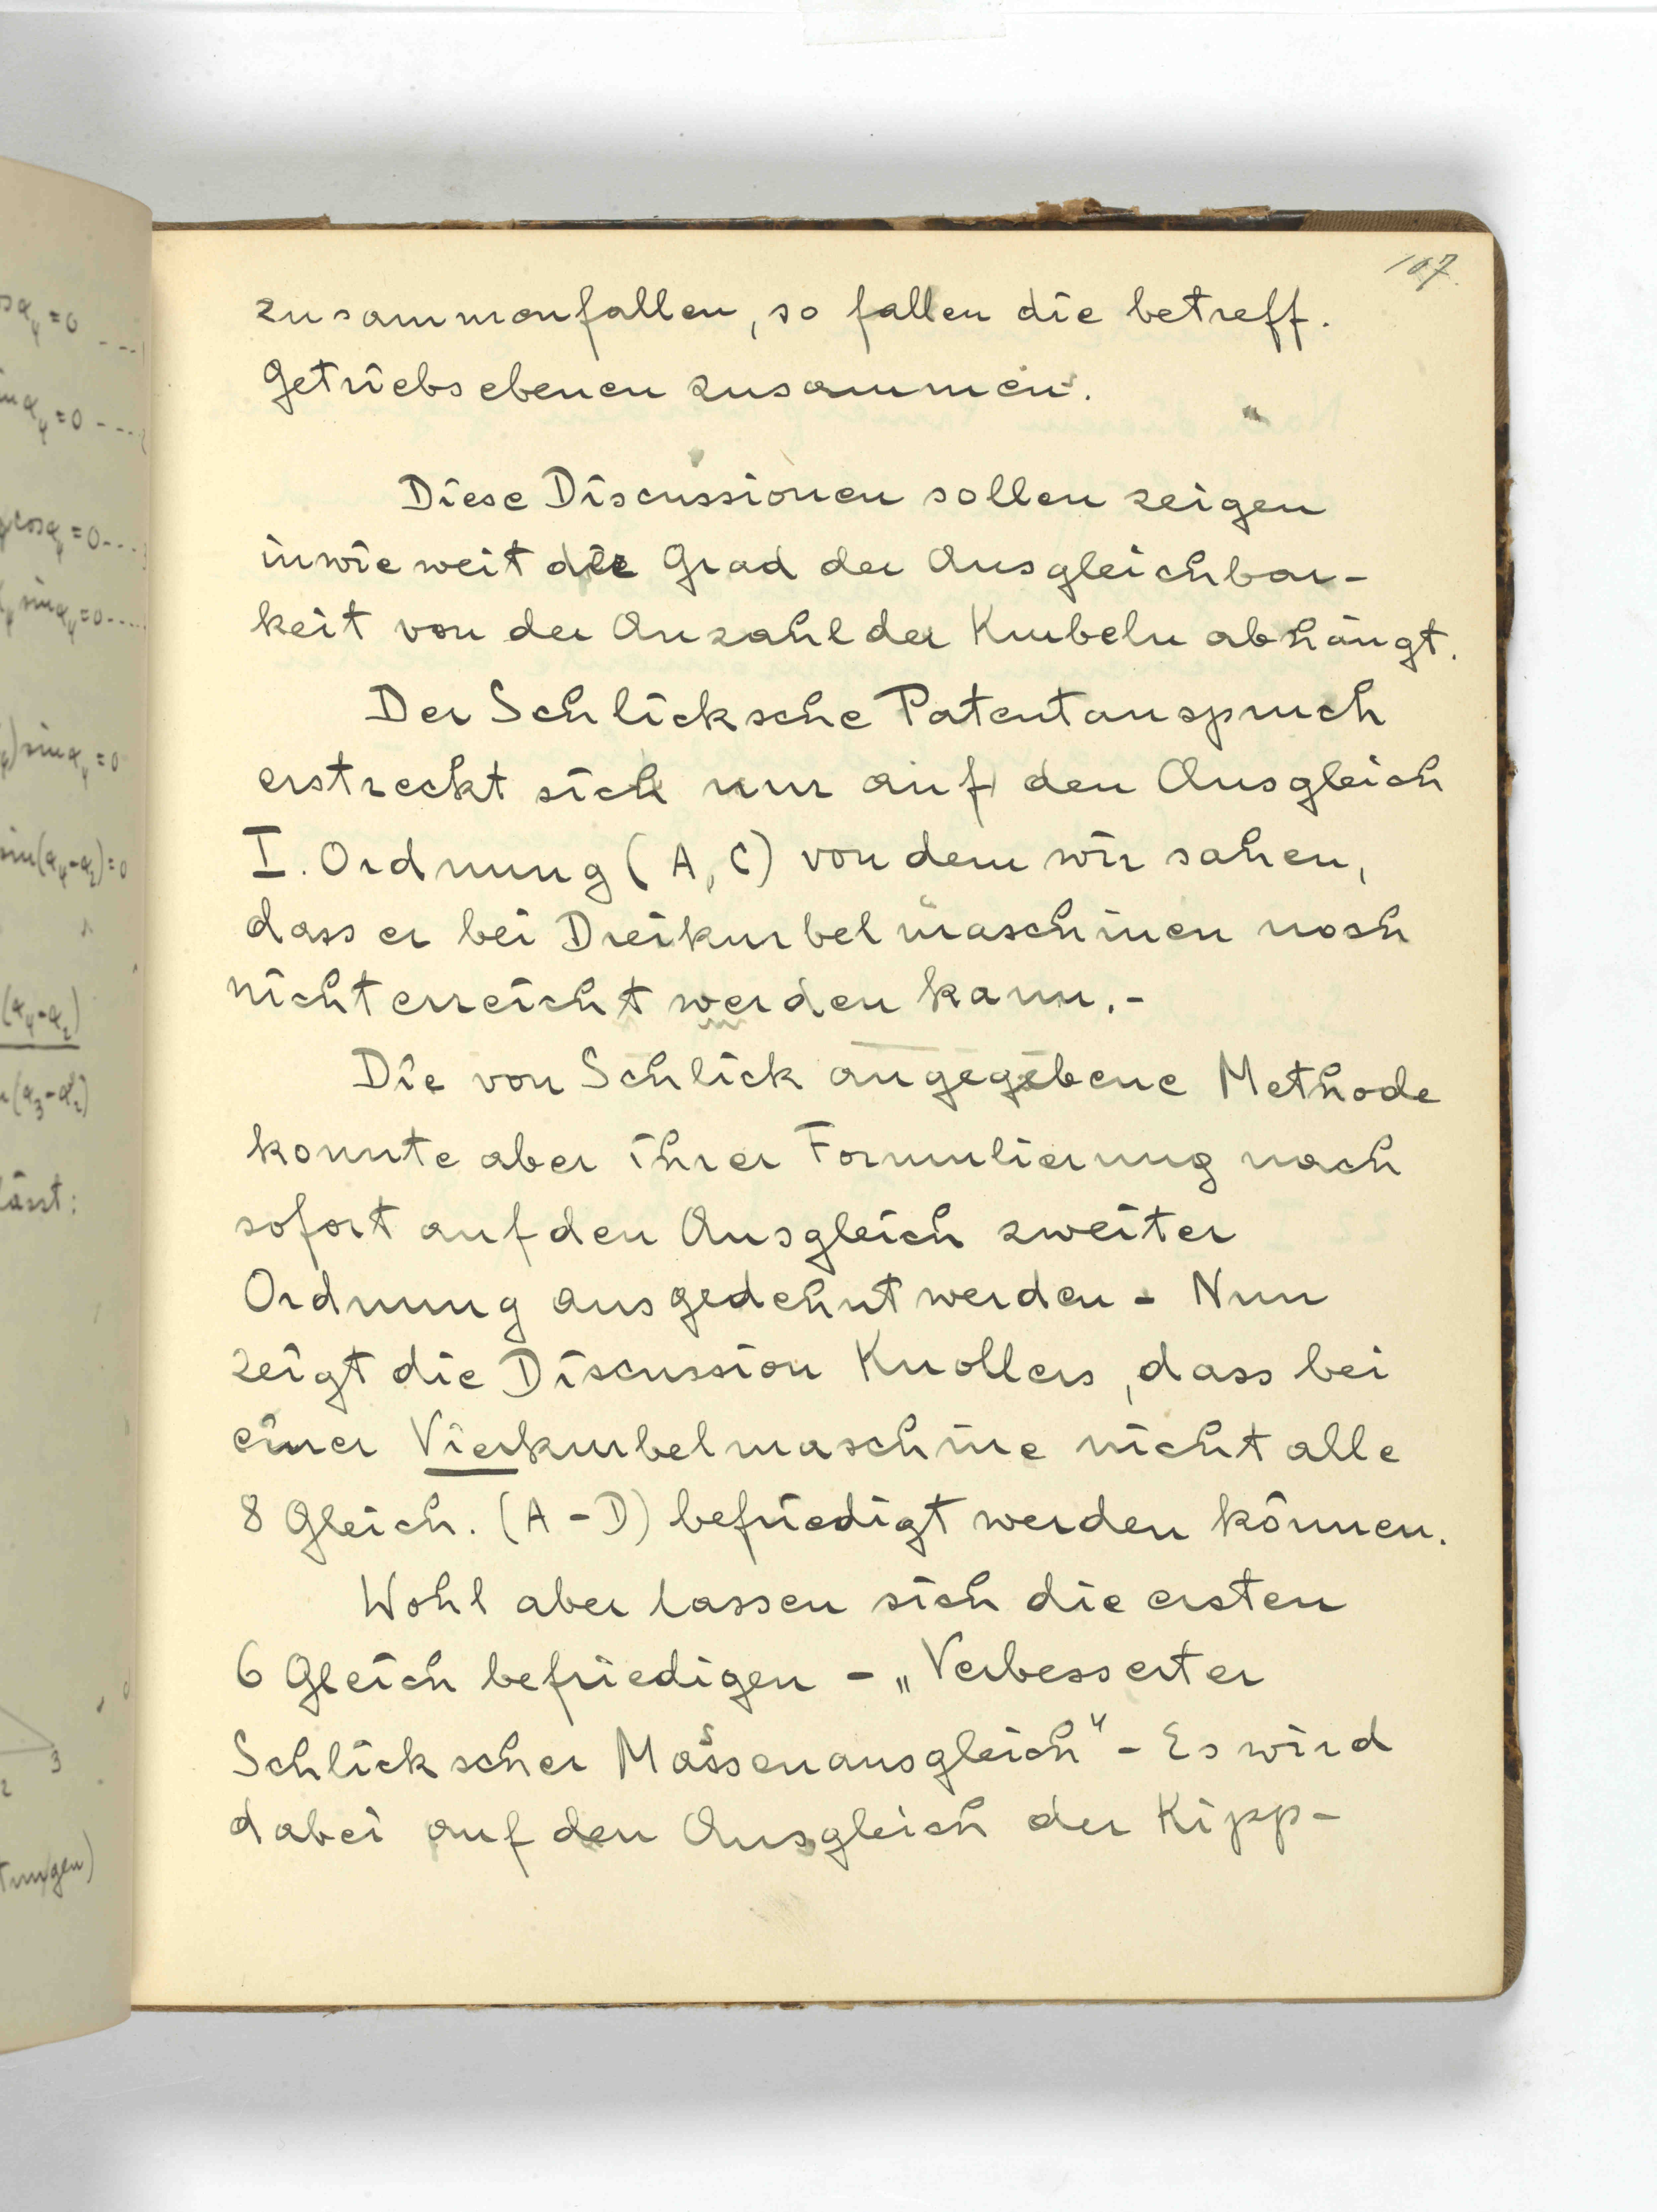 107.
zusammenfallen, so fallen die betreff.
Getriebsebenen zusammen.
Diese Discussionen sollen zeigen
inwieweit der Grad der Ausgleichbar-
keit von der Anzahl der Kurbeln abhängt.
Der Schlicksche Patentanspruch
erstreckt sich nur auf den Ausgleich
I. Ordnung (A, C) von dem wir sahen,
dass er bei Dreikurbelmaschinen noch
nicht erreicht werden kann.-
Die von Schlick angegebene Methode
konnte aber ihrer Formulierung nach
sofort auf den Ausgleich zweiter
Ordnung ausgedehnt werden - Nun
zeigt die Discussion Knollers, dass bei
einer Vierkurbelmaschine nicht alle
8 Gleich. (A - D) befriedigt werden können.
Wohl aber lassen sich die ersten
6 Gleich befriedigen - „Verbesserter
Schlickscher Massenausgleich" - Es wird
dabei auf den Ausgleich der Kipp-
cosα₄ = 0
sinα₄ = 0 - - -
cosα₄ = 0 - - -
sinα₄ = 0 - - -
) sinα₄ = 0
sin(α₄-α₂) = 0
(α₄-α₂)
(α₃-α₂)
lässt:
2 3
tungen)